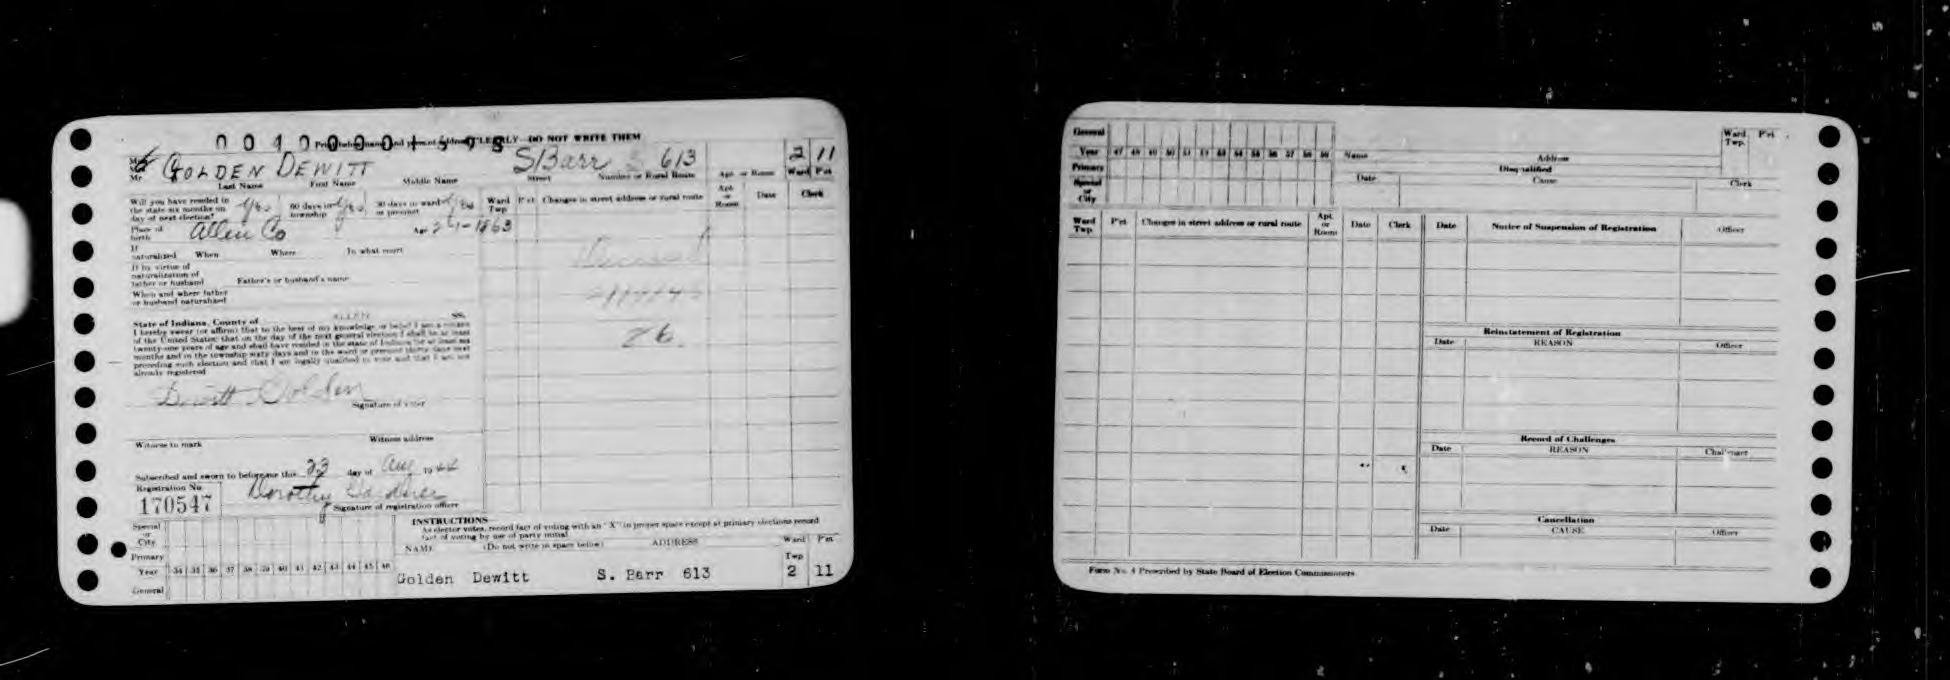 0010000 508
Print below name and present address CLEARLY—DO NOT WRITE THEM
Mr. GOLDEN DEWITT S Barr 613 2 11
Last Name First Name Middle Name Street Number or Rural Route Apt. or Room Ward P'ct
Will you have resided in the state six months on day of next election? Yes 60 days in township Yes 30 days in ward or precinct Yes
Ward Twp P'ct Changes in street address or rural route Apt. or Room Date Clerk
Place of birth Allen Co Age 1863
If naturalized When Where In what court
If by virtue of naturalization of father or husband Father's or husband's name
When and where father or husband naturalized
Deceased
26
State of Indiana, County of ALLEN SS.
I hereby swear (or affirm) that to the best of my knowledge or belief I am a citizen
of the United States; that on the day of the next general election I shall be at least
twenty-one years of age and shall have resided in the state of Indiana for at least six
months and in the township sixty days and in the ward or precinct thirty days next
preceding such election and that I am legally qualified to vote and that I am not
already registered
Dewitt Golden
Signature of voter
Witness to mark Witness address
Subscribed and sworn to before me this 23 day of Aug 1944
Registration No.
170547 Dorothy Gardner
Signature of registration officer
INSTRUCTIONS
As elector votes, record fact of voting with an "X" in proper space except at primary elections record
fact of voting by use of party initial
Special or City
Primary
Year 34 35 36 37 38 39 40 41 42 43 44 45 46
General
NAME (Do not write in space below) ADDRESS Ward Twp P'ct
Golden Dewitt S. Barr 613 2 11
General
Year 47 48 49 50 51 52 53 54 55 56 57 58 59
Primary
Special or City
Name Address Ward Twp. P'ct
Disqualified
Date Cause Clerk
Ward Twp. P'ct Changes in street address or rural route Apt. or Room Date Clerk
Date Notice of Suspension of Registration Officer
Reinstatement of Registration
Date REASON Officer
Record of Challenges
Date REASON Challenger
Cancellation
Date CAUSE Officer
Form No. 4 Prescribed by State Board of Election Commissioners